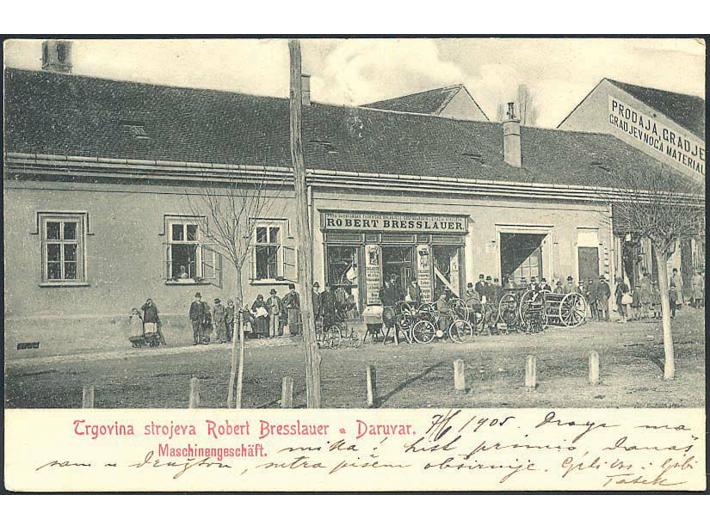 PRODAJA, GRADJE
GRADJEVNOGA MATERIAL
ROBERT BRESSLAUER
Trgovina strojeva Robert Bresslauer • Daruvar.
Maschinengeschäft.
7/6 1905 Draga ma
mika! list primio, Danas
sam u društvu, sutra pišem obširnije.
Tatek